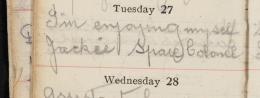 Tuesday 27
I'm enjoying myself
Jackie Space Colonel
Wednesday 28